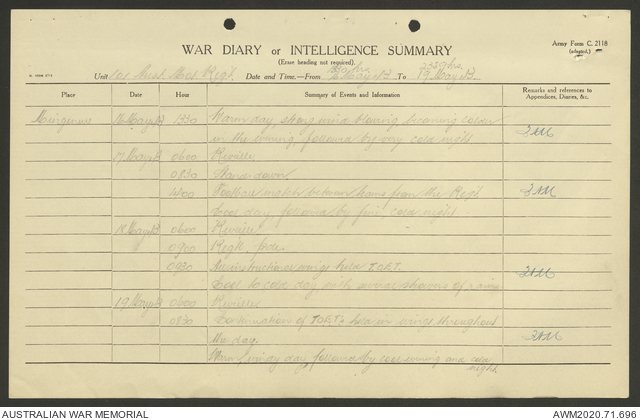 WAR DIARY or INTELLIGENCE SUMMARY
(Erase heading not required).
Army Form C. 2118
(adapted.)
Unit 101 Aust. Mot. Regt. Date and Time—From 1330 hrs 16 May 43 To 2359 hrs 19 May 43
Place Date Hour Summary of Events and Information Remarks and references to Appendices, Diaries, &c.
Mingenew 16 May 43 1330 Warm day, strong wind blowing, becoming colder
in the evening, followed by very cold night
17 May 43 0600 Reveille
0830 Stand down
1400 Football match between teams from the Regt
Cool day, followed by fine, cold night
18 May 43 0600 Reveille
0900 Regtl. parade
0930 All instructional wings held T.O.E.T.
Cool to cold day, with several showers of rain
19 May 43 0600 Reveille
0830 Continuation of T.O.E.Ts held in wings throughout
the day.
Warm, windy day, followed by cool evening and cold
night
AUSTRALIAN WAR MEMORIAL
AWM2020.71.696